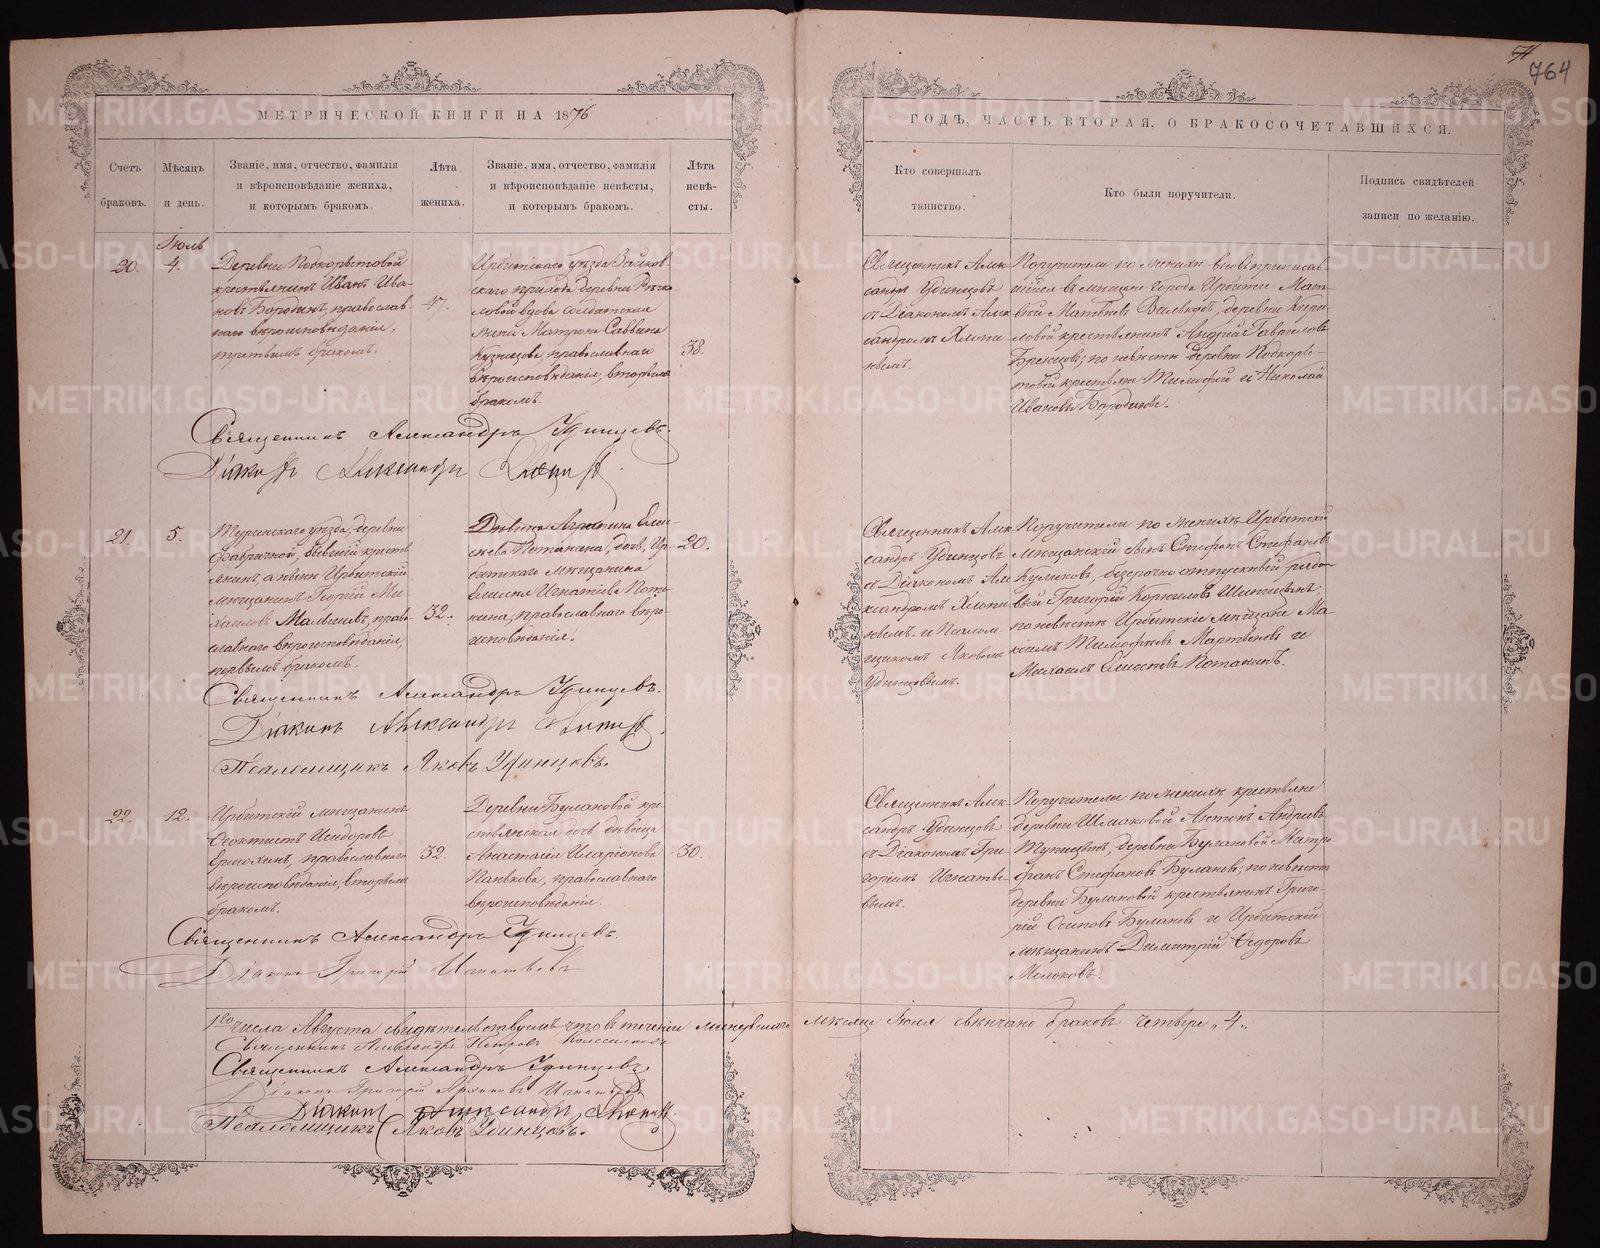 764
МЕТРИЧЕСКОЙ КНИГИ НА 1876
ГОДЪ, ЧАСТЬ ВТОРАЯ, О БРАКОСОЧЕТАВШИХСЯ.
Счетъ
браковъ.
Мѣсяцъ
и день.
Званіе, имя, отчество, фамилія
и вѣроисповѣданіе жениха,
и которымъ бракомъ.
Лѣта
жениха.
Званіе, имя, отчество, фамилія
и вѣроисповѣданіе невѣсты,
и которымъ бракомъ.
Лѣта
невѣ-
сты.
Кто совершалъ
таинство.
Кто были поручители.
Подпись свидѣтелей
записи по желанію.
Іюль
20.
4.
Деревни Подкорытовой
крестьянинъ Иванъ Ива-
новъ Бородинъ, православ-
наго вѣроисповѣданія,
третьимъ бракомъ.
47.
Ирбитскаго уѣзда Зайков-
скаго прихода деревни
ловой вдова солдатская
жена Матрона Саввина
Кузнецова, православнаго
вѣроисповѣданія, вторымъ
бракомъ.
38.
Священникъ Алек-
сандръ Удинцовъ
съ Діакономъ Алек-
сандромъ Хлопи-
нымъ.
Поручители по женихѣ: вновь приписав-
шійся въ мѣщане города Ирбити Мат-
вѣй Матвѣевъ деревни Кири-
ловой крестьянинъ Андрей Гавриловъ
по невѣстѣ деревни Подкоры-
товой крестьяне Тимофей и Николай
Ивановы Бородины.
Священникъ Александръ Удинцевъ.
Діаконъ Александръ Хлопинъ.
21.
5.
Туринскаго уѣзда, деревни
Фабричной, бывшій кресть-
янинъ а нынѣ Ирбитскій
мѣщанинъ Георгій Ми-
хаиловъ Мальцевъ, право-
славнаго вѣроисповѣданія,
первымъ бракомъ.
32.
Дѣвица Агрипина Ели-
сѣева Потанина, дочь Ир-
битскаго мѣщанина
Елисѣя Игнатіева Пота-
нина, православнаго вѣро-
исповѣданія.
20.
Священникъ Алек-
сандръ Удинцовъ
съ Діакономъ Ал-
ександромъ Хлопи-
нымъ и Псалом-
щикомъ Яковомъ
Удинцовымъ.
Поручители по женихѣ Ирбитскій
мѣщанскій сынъ Стефанъ Стефановъ
Куликовъ, безсрочно отпускный рядо-
вой Григорій Корниловъ
по невѣстѣ Ирбитскіе мѣщане Ма-
ксимъ Тимофѣевъ Мартьяновъ и
Михаилъ Елисѣевъ Потанинъ.
Священникъ Александръ Удинцевъ.
Діаконъ Александръ Хлопинъ.
Псаломщикъ Яковъ Удинцовъ.
22.
12.
Ирбитскій мѣщанинъ
Феоктистъ Исидоровъ
Ермохинъ, православнаго
вѣроисповѣданія, вторымъ
бракомъ.
32.
Деревни Булановой кре-
стьянская дочь дѣвица
Анастасія Иларіонова
Панькова, православнаго
вѣроисповѣданія.
30.
Священникъ Алек-
сандръ Удинцовъ
съ Діакономъ Гри-
горіемъ Игнатье-
вымъ.
Поручители по женихѣ крестьяне
деревни Шмаковой Антонъ Андреевъ
деревни Булановой Митро-
фанъ Стефановъ Булановъ; по невѣстѣ
деревни Булановой крестьянинъ Григо-
рій Осиповъ Булановъ и Ирбитскій
мѣщанинъ Димитрій Федоровъ
Молоковъ.
Священникъ Александръ Удинцевъ.
Діаконъ Григорій Игнатьевъ
1го числа Августа свидѣтельствуемъ что въ теченіи минувшаго мѣсяца Іюля вѣнчано браковъ четыре „4„
Священникъ Александръ Петровъ
Священникъ Александръ Удинцевъ.
Діаконъ Григорій Игнатьевъ
Діаконъ Александръ Хлопинъ.
Псаломщикъ Яковъ Удинцовъ.
METRIKI.GASO-URAL.RU